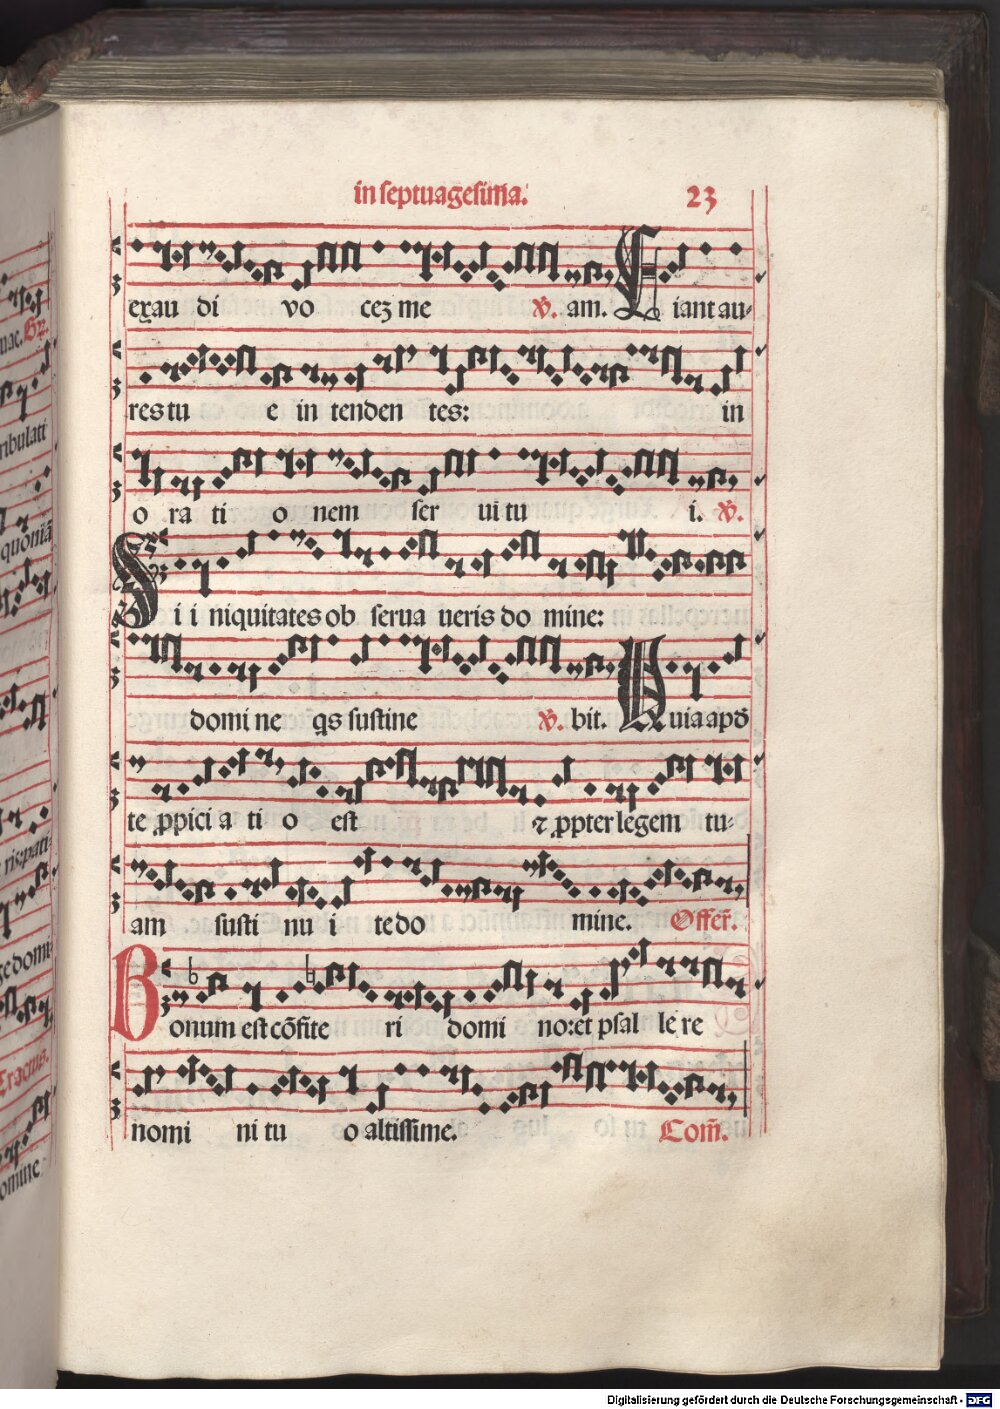 in septuagesima.
23
exau di vo ceʒ me ℣. am. Fiant au-
res tu e in tenden tes: in
o ra ti o nem ser ui tu i. ℣.
Si i niquitates ob serua ueris do mine:
domi ne qs sustine ℣. bit. Quia apd̄
te ꝓpici a ti o est ⁊ ꝓpter legem tu-
am susti nu i te do mine. Offer̄.
Bonum est cōfite ri domi no: et psal le re
nomi ni tu o altissime. Com̄.
Digitalisierung gefördert durch die Deutsche Forschungsgemeinschaft - DFG